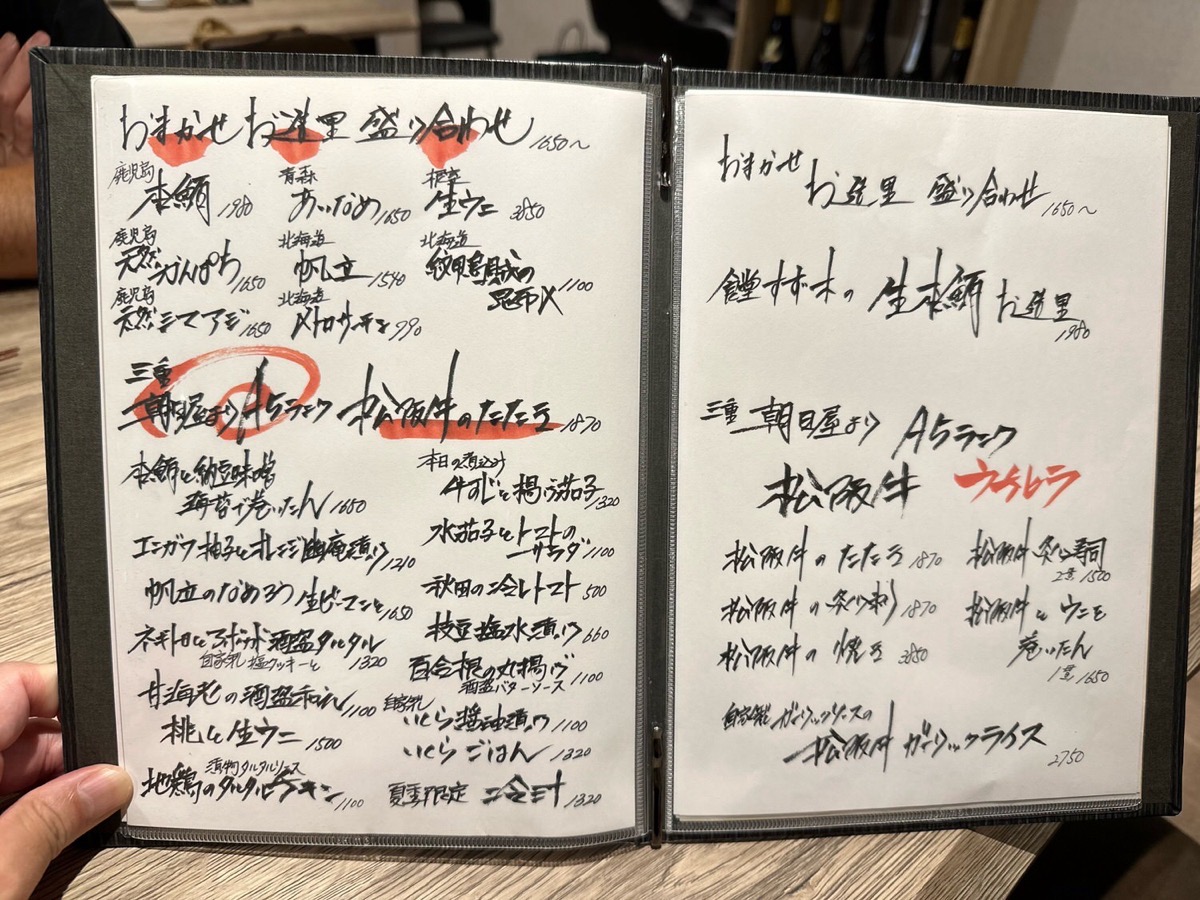 おまかせ お造里 盛り合わせ 1650〜
鹿児島 本鮪 1980
青森 あいなめ 1650
根室 生ウニ 3850
鹿児島 天然かんぱち 1650
北海道 帆立 1540
北海道 紋甲烏賊の昆布〆 1100
鹿児島 天然シマアジ 1650
北海道 〆トロサーモン 990
三重 朝日屋より A5ランク 松阪牛のたたき 1870
本鮪と納豆味噌
海苔で巻いたん 1650
エンガワ 柚子とオレンジ幽庵漬け 1210
帆立のなめろう 生ピーマンと 1650
ネギトロとアボカド酒盗タルタル
自家製 塩クッキーと 1320
甘海老の酒盗和え 1100
桃と生ウニ 1500
漬物タルタルソース
地鶏のタルタルチキン 1100
本日の煮込み
牛すじと揚げ茄子 1320
水茄子とトマトの
サラダ 1100
秋田の冷しトマト 500
枝豆塩水漬け 660
百合根の丸揚げ
酒盗バターソース 1100
自家製 いくら醤油漬け 1100
いくらごはん 1320
夏季限定 冷汁 1320
おまかせ
お造里 盛り合わせ 1650〜
食堂すず木の 生本鮪 お造里
1980
三重 朝日屋より A5ランク
松阪牛 ウチヒラ
松阪牛のたたき 1870
松阪牛の炙り刺 1870
松阪牛の焼き 3850
松阪牛 炙り寿司
2貫 1500
松阪牛とウニを
巻いたん
1貫 1650
自家製 ガーリックソースの
松阪牛 ガーリックライス
2750